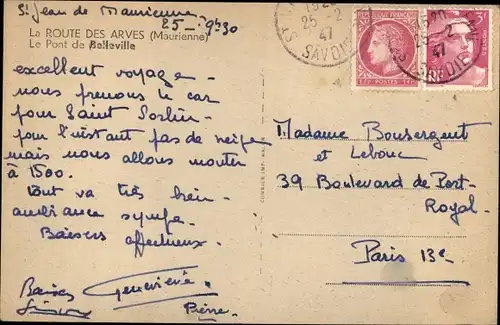 St Jean de Maurienne
25 - 9h30
La ROUTE DES ARVES (Maurienne)
Le Pont de Belleville
excellent voyage -
nous prenons le car
pour Saint Sorlin -
pour l'instant pas de neige
mais nous allons monter
à 1500.
Tout va très bien -
ambiance sympa -
Baisers affectueux.
Baisers Geneviève
Pierre
25 -2
47
SAVOIE
REPUBLIQUE FRANÇAISE
POSTES
25 -2
47
Madame Bousergent
et Lebouc
39 Boulevard de Port-
Royal -
Paris 13e